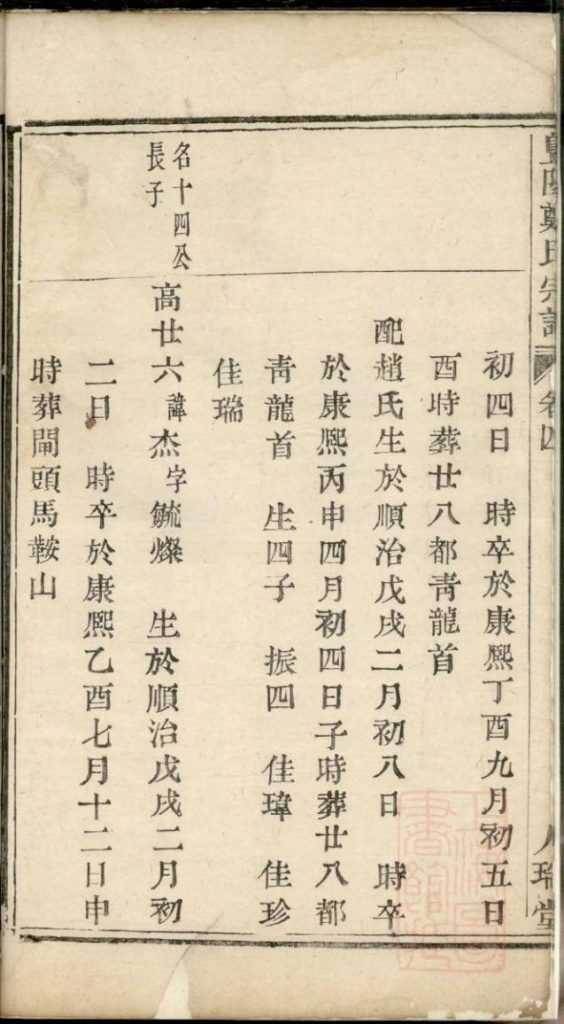 暨陽鄭氏宗譜 卷四
初四日 時卒於康熙丁酉九月初五日
酉時葬廿八都靑龍首
配趙氏生於順治戊戌二月初八日 時卒
於康熙丙申四月初四日子時葬廿八都
靑龍首 生四子 振四 佳瑋 佳珍
佳瑞
名十四公
長子
高廿六諱杰字毓燦 生於順治戊戌二月初
二日 時卒於康熙乙酉七月十二日申
時葬閘頭馬鞍山